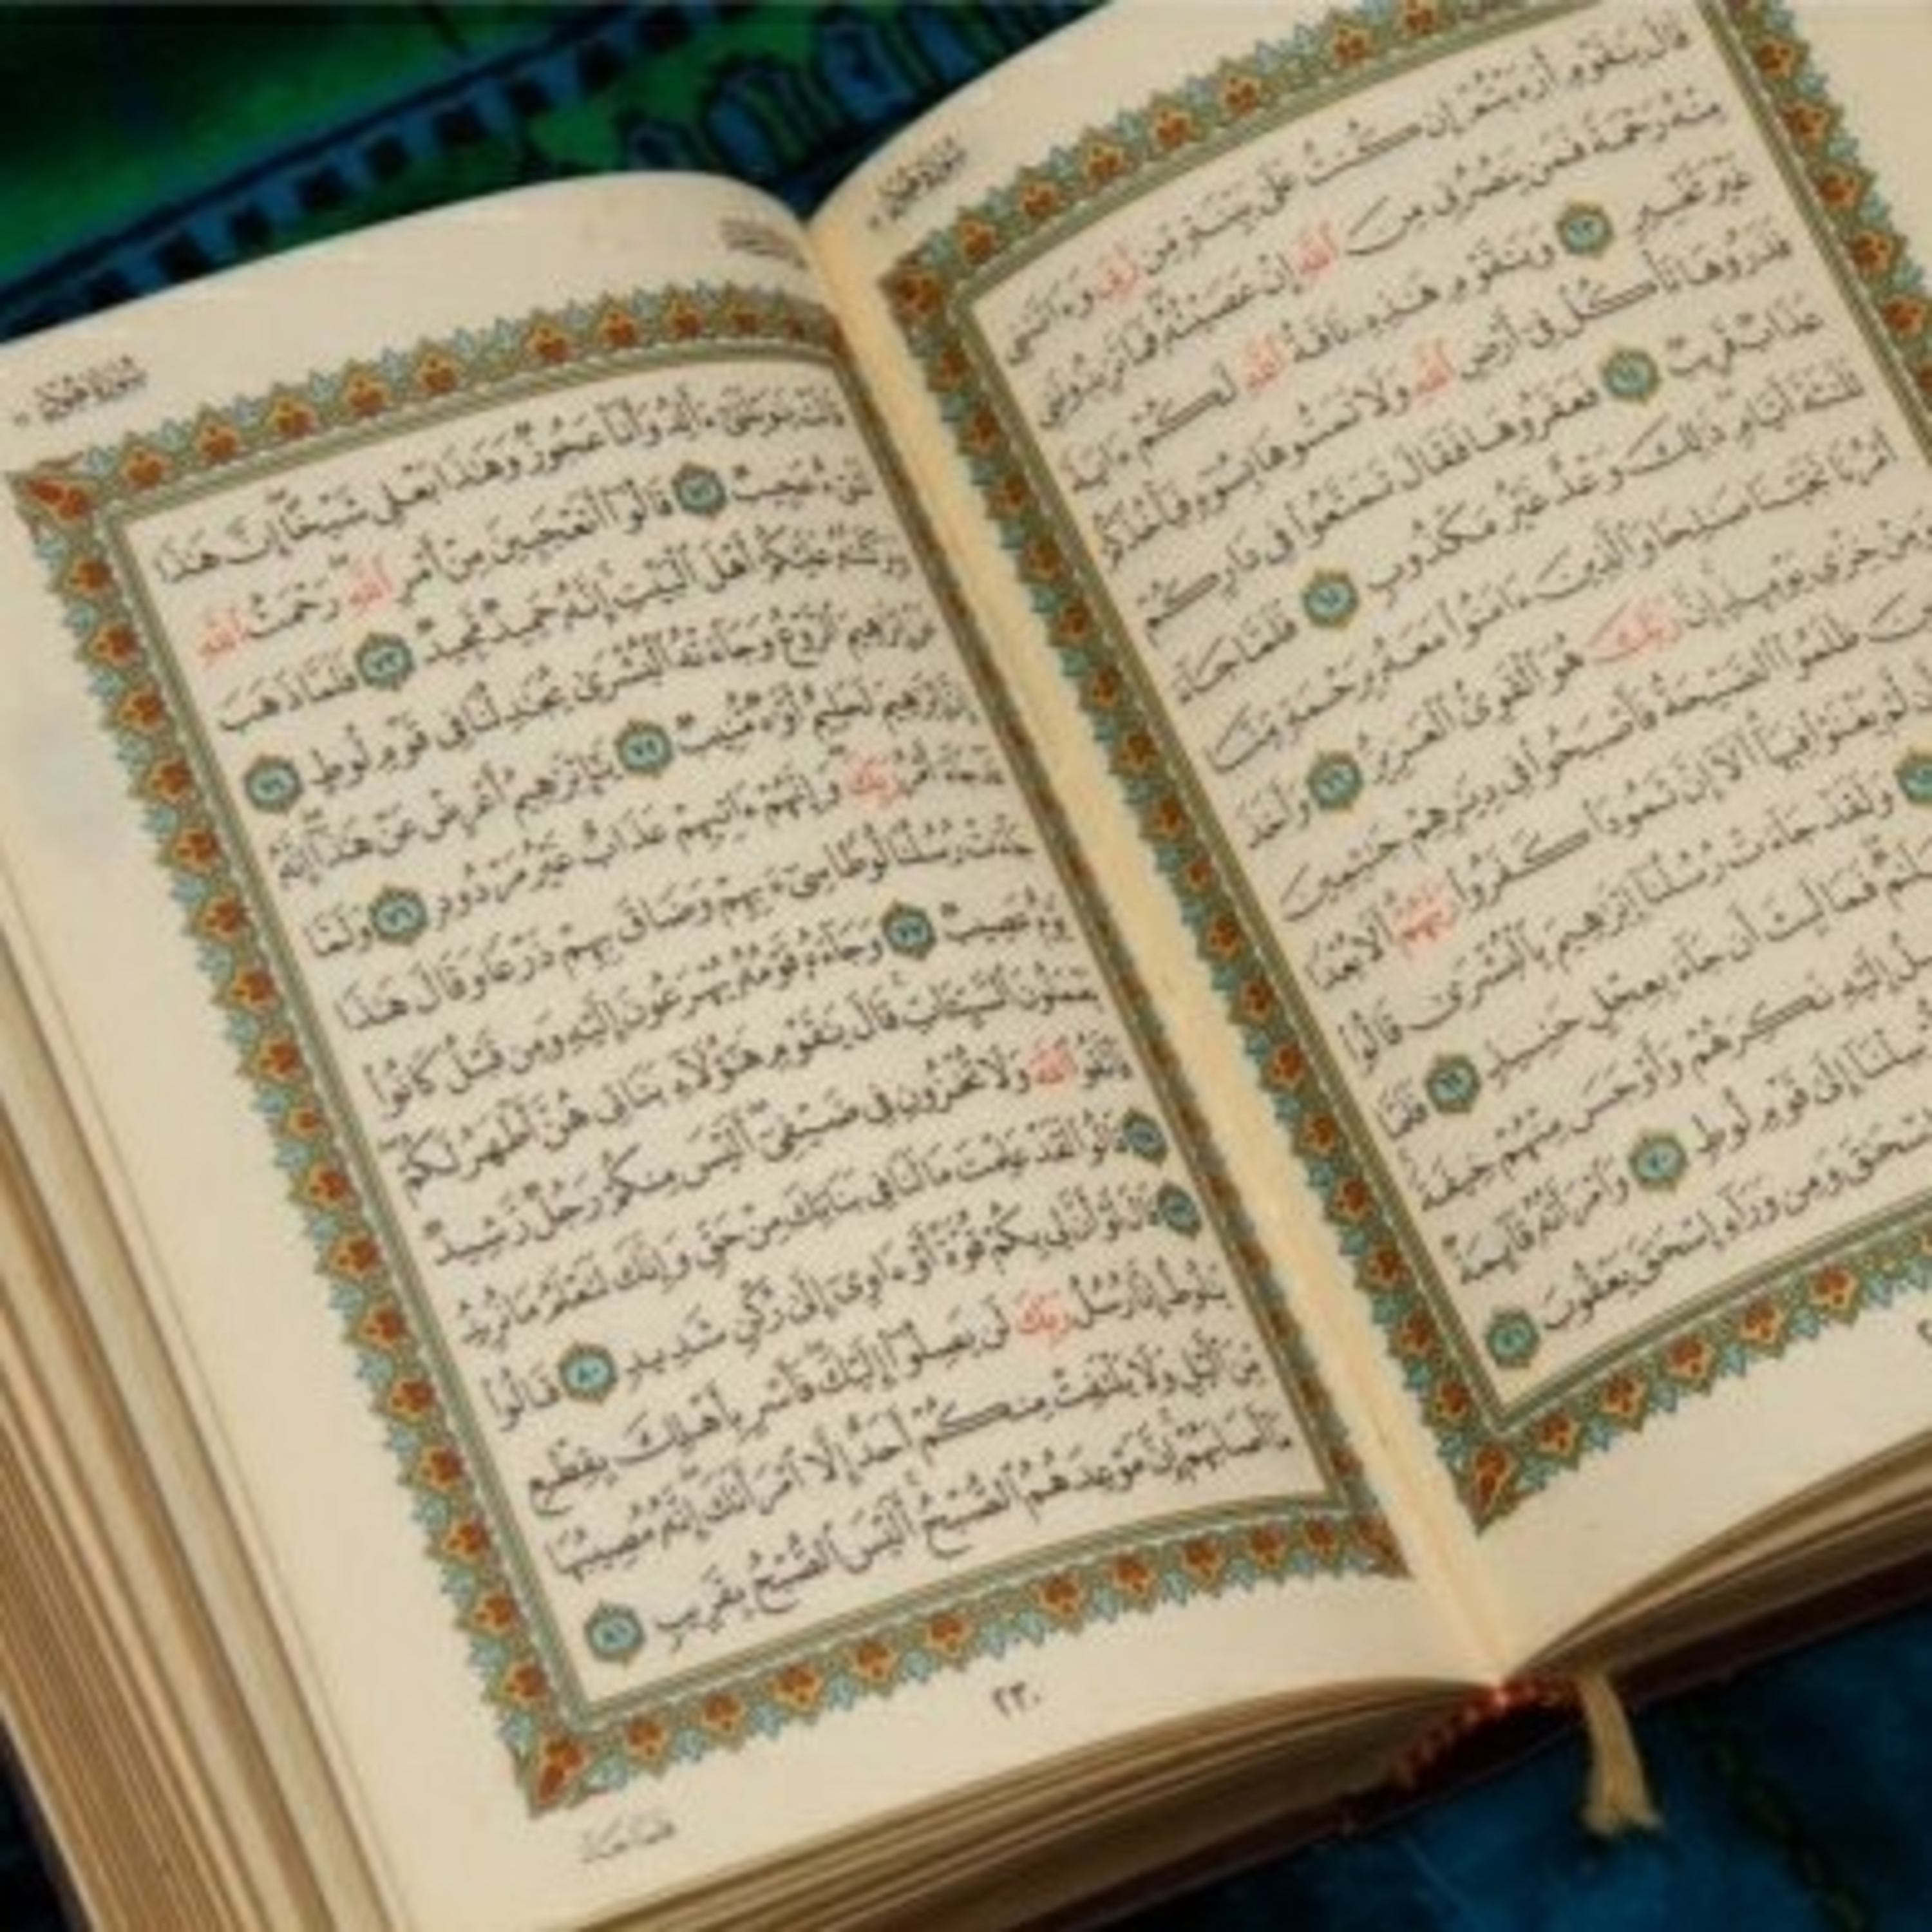 سُورَةُ هُودٍ
قَالَ يَـٰقَوْمِ أَرَءَيْتُمْ إِن كُنتُ عَلَىٰ بَيِّنَةٍ مِّن رَّبِّى وَءَاتَىٰنِى
مِنْهُ رَحْمَةً فَمَن يَنصُرُنِى مِنَ ٱللَّهِ إِنْ عَصَيْتُهُۥ فَمَا تَزِيدُونَنِى
غَيْرَ تَخْسِيرٍ ٦٣ وَيَـٰقَوْمِ هَـٰذِهِۦ نَاقَةُ ٱللَّهِ لَكُمْ ءَايَةً
فَذَرُوهَا تَأْكُلْ فِىٓ أَرْضِ ٱللَّهِ وَلَا تَمَسُّوهَا بِسُوٓءٍ فَيَأْخُذَكُمْ
عَذَابٌ قَرِيبٌ ٦٤ فَعَقَرُوهَا فَقَالَ تَمَتَّعُوا۟ فِى دَارِكُمْ
ثَلَـٰثَةَ أَيَّامٍ ذَٰلِكَ وَعْدٌ غَيْرُ مَكْذُوبٍ ٦٥ فَلَمَّا جَآءَ
أَمْرُنَا نَجَّيْنَا صَـٰلِحًا وَٱلَّذِينَ ءَامَنُوا۟ مَعَهُۥ بِرَحْمَةٍ مِّنَّا
وَمِنْ خِزْىِ يَوْمِئِذٍ إِنَّ رَبَّكَ هُوَ ٱلْقَوِىُّ ٱلْعَزِيزُ ٦٦ وَأَخَذَ
ظَلَمُوا۟ ٱلصَّيْحَةُ فَأَصْبَحُوا۟ فِى دِيَـٰرِهِمْ جَـٰثِمِينَ
لَّمْ يَغْنَوْا۟ فِيهَآ أَلَآ إِنَّ ثَمُودَا۟ كَفَرُوا۟ رَبَّهُمْ أَلَا بُعْدًا
٦٨ وَلَقَدْ جَآءَتْ رُسُلُنَآ إِبْرَٰهِيمَ بِٱلْبُشْرَىٰ قَالُوا۟
سَلَـٰمٌ فَمَا لَبِثَ أَن جَآءَ بِعِجْلٍ حَنِيذٍ ٦٩ فَلَمَّا
تَصِلُ إِلَيْهِ نَكِرَهُمْ وَأَوْجَسَ مِنْهُمْ خِيفَةً
أُرْسِلْنَآ إِلَىٰ قَوْمِ لُوطٍ ٧٠ وَٱمْرَأَتُهُۥ قَآئِمَةٌ
بِإِسْحَـٰقَ وَمِن وَرَآءِ إِسْحَـٰقَ يَعْقُوبَ ٧١
سُورَةُ هُودٍ
قَالَتْ يَـٰوَيْلَتَىٰٓ ءَأَلِدُ وَأَنَا۠ عَجُوزٌ وَهَـٰذَا بَعْلِى شَيْخًا إِنَّ هَـٰذَا
لَشَىْءٌ عَجِيبٌ ٧٢ قَالُوٓا۟ أَتَعْجَبِينَ مِنْ أَمْرِ ٱللَّهِ رَحْمَتُ ٱللَّهِ
وَبَرَكَـٰتُهُۥ عَلَيْكُمْ أَهْلَ ٱلْبَيْتِ إِنَّهُۥ حَمِيدٌ مَّجِيدٌ ٧٣ فَلَمَّا ذَهَبَ
عَنْ إِبْرَٰهِيمَ ٱلرَّوْعُ وَجَآءَتْهُ ٱلْبُشْرَىٰ يُجَـٰدِلُنَا فِى قَوْمِ لُوطٍ ٧٤
إِنَّ إِبْرَٰهِيمَ لَحَلِيمٌ أَوَّٰهٌ مُّنِيبٌ ٧٥ يَـٰٓإِبْرَٰهِيمُ أَعْرِضْ عَنْ هَـٰذَآ إِنَّهُۥ
قَدْ جَآءَ أَمْرُ رَبِّكَ وَإِنَّهُمْ ءَاتِيهِمْ عَذَابٌ غَيْرُ مَرْدُودٍ ٧٦ وَلَمَّا
جَآءَتْ رُسُلُنَا لُوطًا سِىٓءَ بِهِمْ وَضَاقَ بِهِمْ ذَرْعًا وَقَالَ هَـٰذَا
يَوْمٌ عَصِيبٌ ٧٧ وَجَآءَهُۥ قَوْمُهُۥ يُهْرَعُونَ إِلَيْهِ وَمِن قَبْلُ كَانُوا۟
يَعْمَلُونَ ٱلسَّيِّـَٔاتِ قَالَ يَـٰقَوْمِ هَـٰٓؤُلَآءِ بَنَاتِى هُنَّ أَطْهَرُ لَكُمْ
فَٱتَّقُوا۟ ٱللَّهَ وَلَا تُخْزُونِ فِى ضَيْفِىٓ أَلَيْسَ مِنكُمْ رَجُلٌ رَّشِيدٌ
٧٨ قَالُوا۟ لَقَدْ عَلِمْتَ مَا لَنَا فِى بَنَاتِكَ مِنْ حَقٍّ وَإِنَّكَ لَتَعْلَمُ مَا نُرِيدُ
٧٩ قَالَ لَوْ أَنَّ لِى بِكُمْ قُوَّةً أَوْ ءَاوِىٓ إِلَىٰ رُكْنٍ شَدِيدٍ ٨٠ قَالُوا۟
يَـٰلُوطُ إِنَّا رُسُلُ رَبِّكَ لَن يَصِلُوٓا۟ إِلَيْكَ فَأَسْرِ بِأَهْلِكَ بِقِطْعٍ
مِّنَ ٱلَّيْلِ وَلَا يَلْتَفِتْ مِنكُمْ أَحَدٌ إِلَّا ٱمْرَأَتَكَ إِنَّهُۥ مُصِيبُهَا
مَآ أَصَابَهُمْ إِنَّ مَوْعِدَهُمُ ٱلصُّبْحُ أَلَيْسَ ٱلصُّبْحُ بِقَرِيبٍ ٨١
٢٣٠
فلما جاء